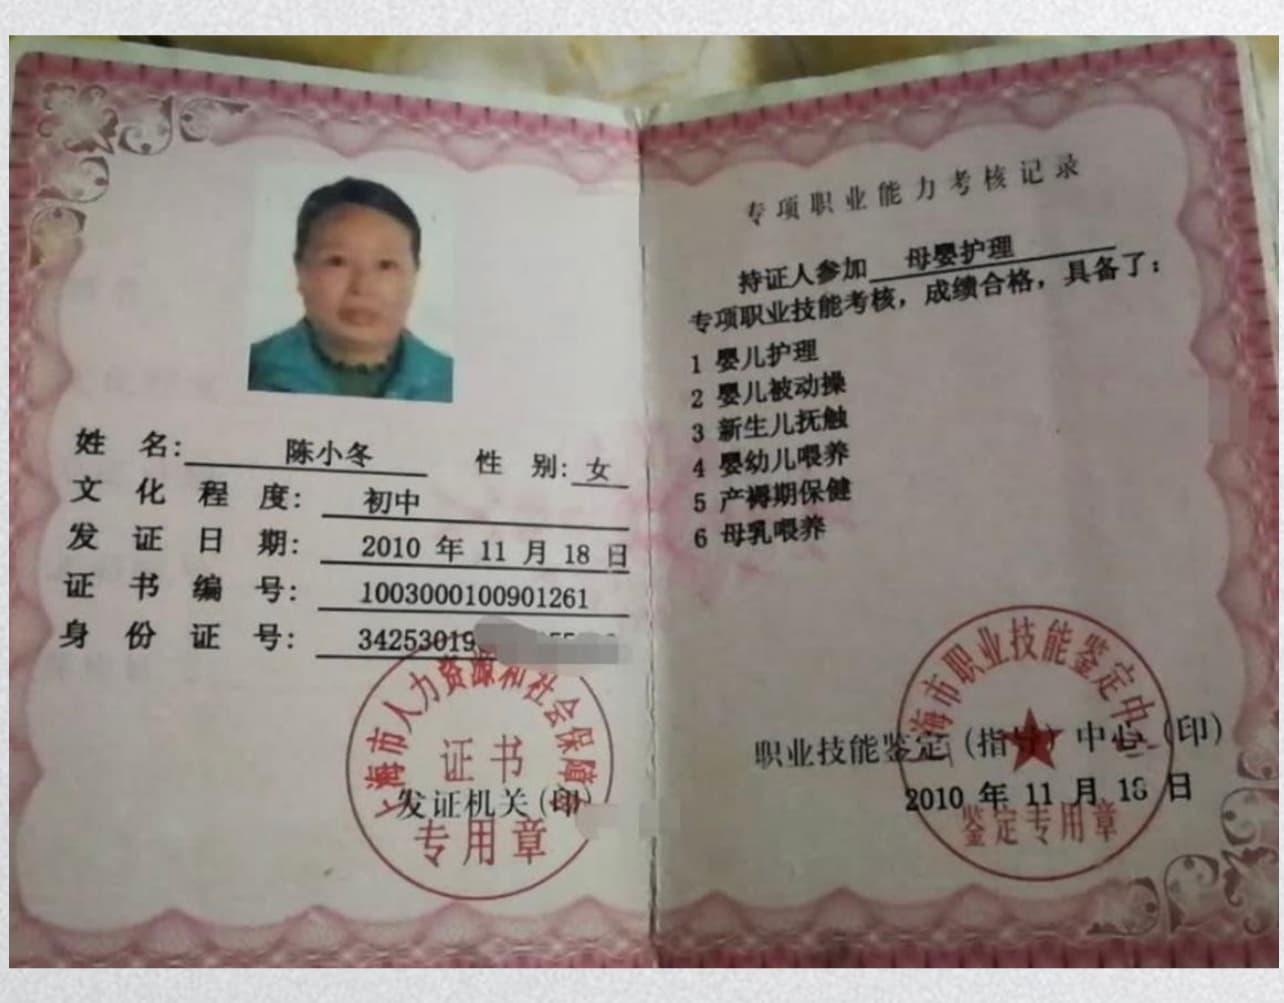 姓名：陈小冬 性别：女
文化程度：初中
发证日期：2010 年 11 月 18 日
证书编号：1003000100901261
身份证号：34253019
上海市人力资源和社会保障
证书
发证机关(印)
专用章
专项职业能力考核记录
持证人参加 母婴护理
专项职业技能考核，成绩合格，具备了：
1 婴儿护理
2 婴儿被动操
3 新生儿抚触
4 婴幼儿喂养
5 产褥期保健
6 母乳喂养
海市职业技能鉴定中
职业技能鉴定(指导)中心(印)
2010 年 11 月 18 日
鉴定专用章